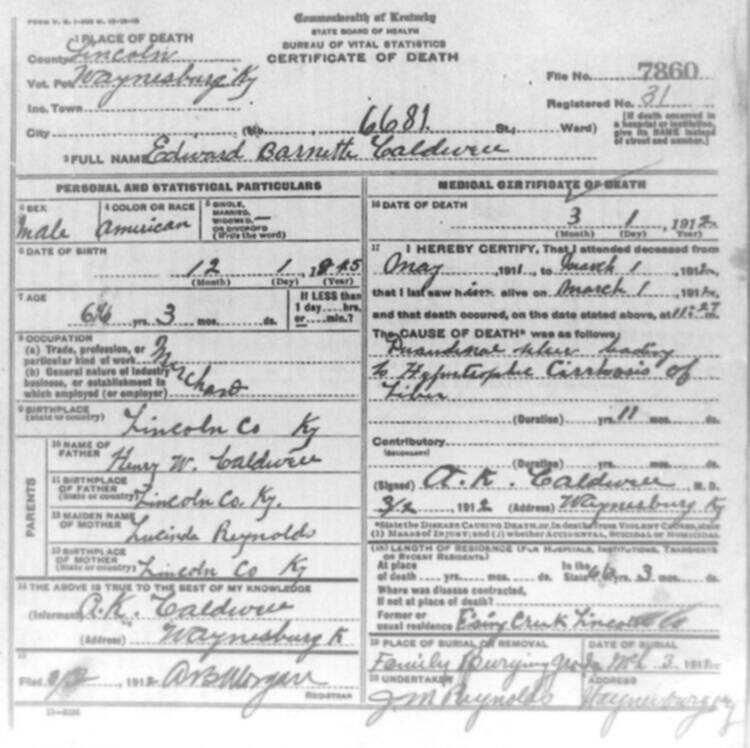 FORM V. S. 1-
Commonwealth of Kentucky
STATE BOARD OF HEALTH
BUREAU OF VITAL STATISTICS
CERTIFICATE OF DEATH
1 PLACE OF DEATH
County Lincoln
Vot. Pct. Waynesburg Ky
Inc. Town
City (No. 6681 St., Ward)
File No. 7860
Registered No. 31
[If death occurred in a hospital or institution, give its NAME instead of street and number.]
2 FULL NAME Edward Barnette Caldwell
PERSONAL AND STATISTICAL PARTICULARS
3 SEX
Male
4 COLOR OR RACE
American
5 SINGLE, MARRIED, WIDOWED, OR DIVORCED (Write the word)
6 DATE OF BIRTH
12 1 1845
(Month) (Day) (Year)
7 AGE
66 yrs. 3 mos. ds.
If LESS than 1 day....hrs. or....min.?
8 OCCUPATION
(a) Trade, profession, or particular kind of work Merchant
(b) General nature of industry business, or establishment in which employed (or employer)
9 BIRTHPLACE
(State or country) Lincoln Co Ky
PARENTS
10 NAME OF FATHER Henry W. Caldwell
11 BIRTHPLACE OF FATHER (State or country) Lincoln Co. Ky.
12 MAIDEN NAME OF MOTHER Lucinda Reynolds
13 BIRTHPLACE OF MOTHER (State or country) Lincoln Co Ky
14 THE ABOVE IS TRUE TO THE BEST OF MY KNOWLEDGE
(Informant) A. K. Caldwell
(Address) Waynesburg K
15
Filed 3/2, 1912 AB Morgan
REGISTRAR
MEDICAL CERTIFICATE OF DEATH
16 DATE OF DEATH
3 1 1912
(Month) (Day) (Year)
17 I HEREBY CERTIFY, That I attended deceased from
May, 1911, to March 1, 1912,
that I last saw him alive on March 1, 1912,
and that death occured, on the date stated above, at 11:27 m.
The CAUSE OF DEATH* was as follows:
leading
to Hypertrophic Cirrhosis of
Liver
(Duration) yrs. 11 mos. ds.
Contributory
(SECONDARY)
(Duration) yrs. mos. ds.
(Signed) A. K. Caldwell M. D.
3/2, 1912 (Address) Waynesburg Ky
*State the DISEASE CAUSING DEATH, or, in deaths from VIOLENT CAUSES, state
(1) MEANS OF INJURY; and (2) whether ACCIDENTAL, SUICIDAL OR HOMICIDAL
(18) LENGTH OF RESIDENCE (FOR HOSPITALS, INSTITUTIONS, TRANSIENTS OR RECENT RESIDENTS)
At place of death yrs. mos. ds. In the State 66 yrs. 3 mos. ds.
Where was disease contracted,
If not at place of death?
Former or usual residence Creek Lincoln Co
19 PLACE OF BURIAL OR REMOVAL
Family Burying Ground
DATE OF BURIAL
Mch 3, 1912
20 UNDERTAKER
J M Reynolds
ADDRESS
Waynesburg Ky